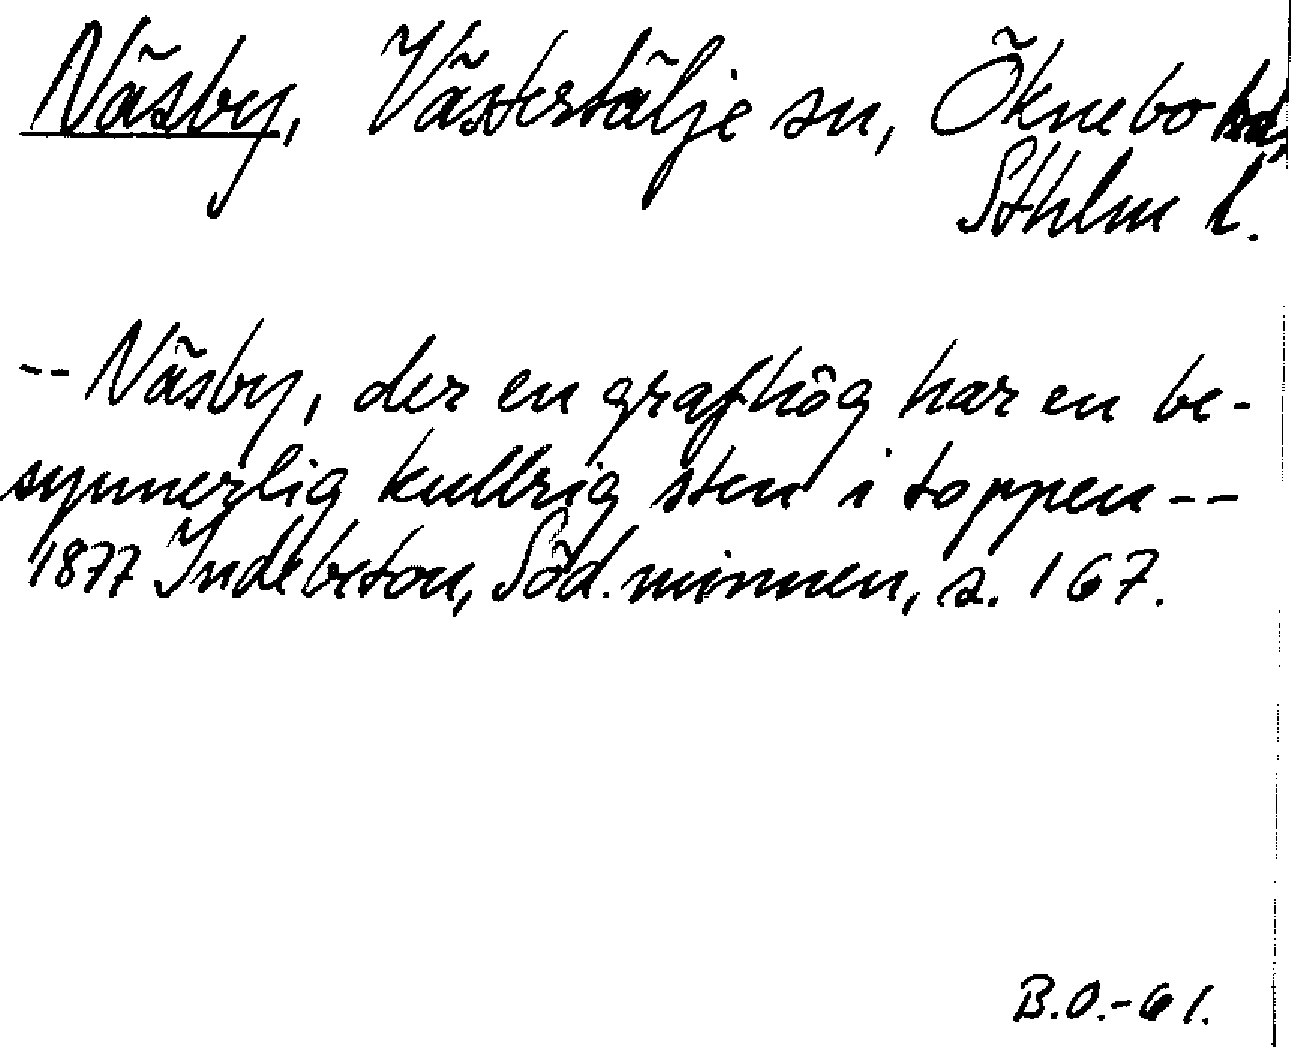 Näsby, Västertälje sn, Öknebo hd,
Sthlm l.
-- Näsby, der en grafhög har en be-
synnerlig kullrig sten i toppen --
1877 Indebetou, Söd. minnen, s. 167.
B.O.-61.